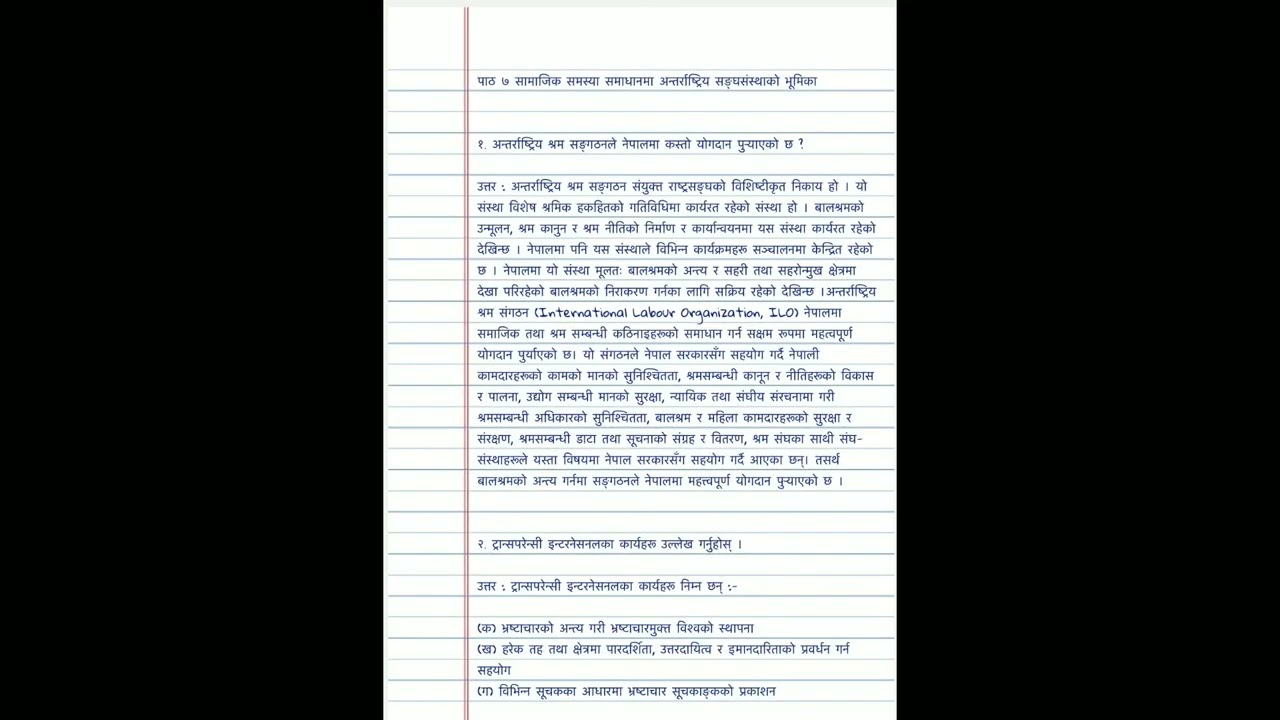 पाठ ७ सामाजिक समस्या समाधानमा अन्तर्राष्ट्रिय सङ्घसंस्थाको भूमिका
१. अन्तर्राष्ट्रिय श्रम सङ्गठनले नेपालमा कस्तो योगदान पुऱ्याएको छ ?
उत्तर : अन्तर्राष्ट्रिय श्रम सङ्गठन संयुक्त राष्ट्रसङ्घको विशिष्टीकृत निकाय हो । यो
संस्था विशेष श्रमिक हकहितको गतिविधिमा कार्यरत रहेको संस्था हो । बालश्रमको
उन्मूलन, श्रम कानुन र श्रम नीतिको निर्माण र कार्यान्वयनमा यस संस्था कार्यरत रहेको
देखिन्छ । नेपालमा पनि यस संस्थाले विभिन्न कार्यक्रमहरू सञ्चालनमा केन्द्रित रहेको
छ । नेपालमा यो संस्था मूलतः बालश्रमको अन्त्य र सहरी तथा सहरोन्मुख क्षेत्रमा
देखा परिरहेको बालश्रमको निराकरण गर्नका लागि सक्रिय रहेको देखिन्छ ।अन्तर्राष्ट्रिय
श्रम संगठन (International Labour Organization, ILO) नेपालमा
समाजिक तथा श्रम सम्बन्धी कठिनाइहरूको समाधान गर्न सक्षम रूपमा महत्वपूर्ण
योगदान पुर्याएको छ। यो संगठनले नेपाल सरकारसँग सहयोग गर्दै नेपाली
कामदारहरूको कामको मानको सुनिश्चितता, श्रमसम्बन्धी कानून र नीतिहरूको विकास
र पालना, उद्योग सम्बन्धी मानको सुरक्षा, न्यायिक तथा संघीय संरचनामा गरी
श्रमसम्बन्धी अधिकारको सुनिश्चितता, बालश्रम र महिला कामदारहरूको सुरक्षा र
संरक्षण, श्रमसम्बन्धी डाटा तथा सूचनाको संग्रह र वितरण, श्रम संघका साथी संघ-
संस्थाहरूले यस्ता विषयमा नेपाल सरकारसँग सहयोग गर्दै आएका छन्। तसर्थ
बालश्रमको अन्त्य गर्नमा सङ्गठनले नेपालमा महत्त्वपूर्ण योगदान पुऱ्याएको छ ।
२. ट्रान्सपरेन्सी इन्टरनेसनलका कार्यहरू उल्लेख गर्नुहोस् ।
उत्तर : ट्रान्सपरेन्सी इन्टरनेसनलका कार्यहरू निम्न छन् :-
(क) भ्रष्टाचारको अन्त्य गरी भ्रष्टाचारमुक्त विश्वको स्थापना
(ख) हरेक तह तथा क्षेत्रमा पारदर्शिता, उत्तरदायित्व र इमानदारिताको प्रवर्धन गर्न
सहयोग
(ग) विभिन्न सूचकका आधारमा भ्रष्टाचार सूचकाङ्कको प्रकाशन